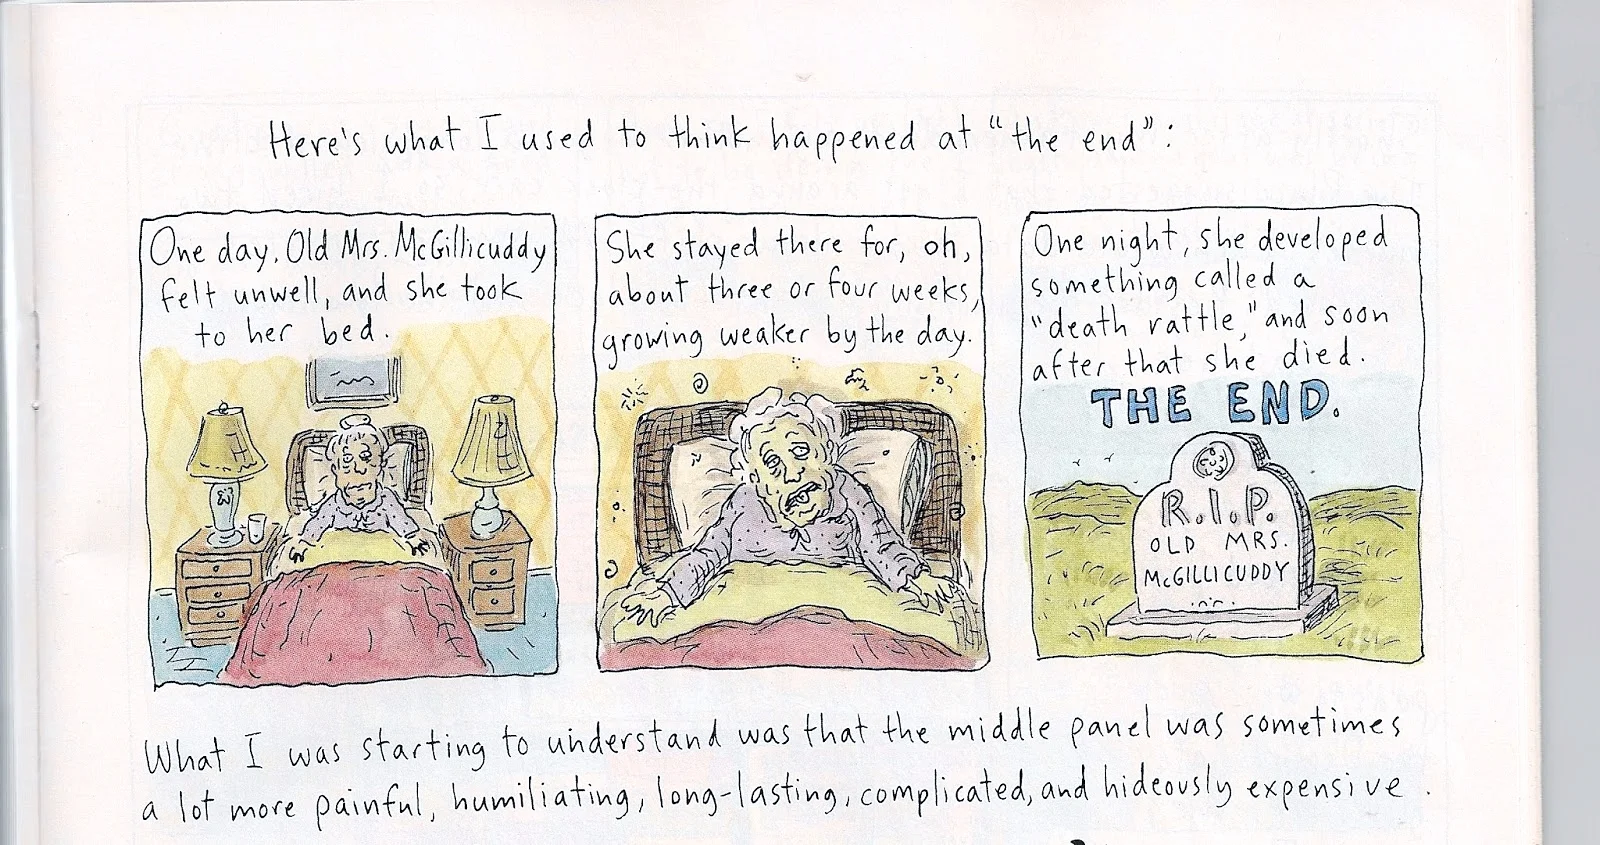 Here's what I used to think happened at "the end":
One day, Old Mrs. McGillicuddy
felt unwell, and she took
to her bed.
She stayed there for, oh,
about three or four weeks,
growing weaker by the day.
One night, she developed
something called a
"death rattle," and soon
after that she died.
THE END.
R.I.P.
OLD MRS.
McGILLICUDDY
What I was starting to understand was that the middle panel was sometimes
a lot more painful, humiliating, long-lasting, complicated, and hideously expensive.